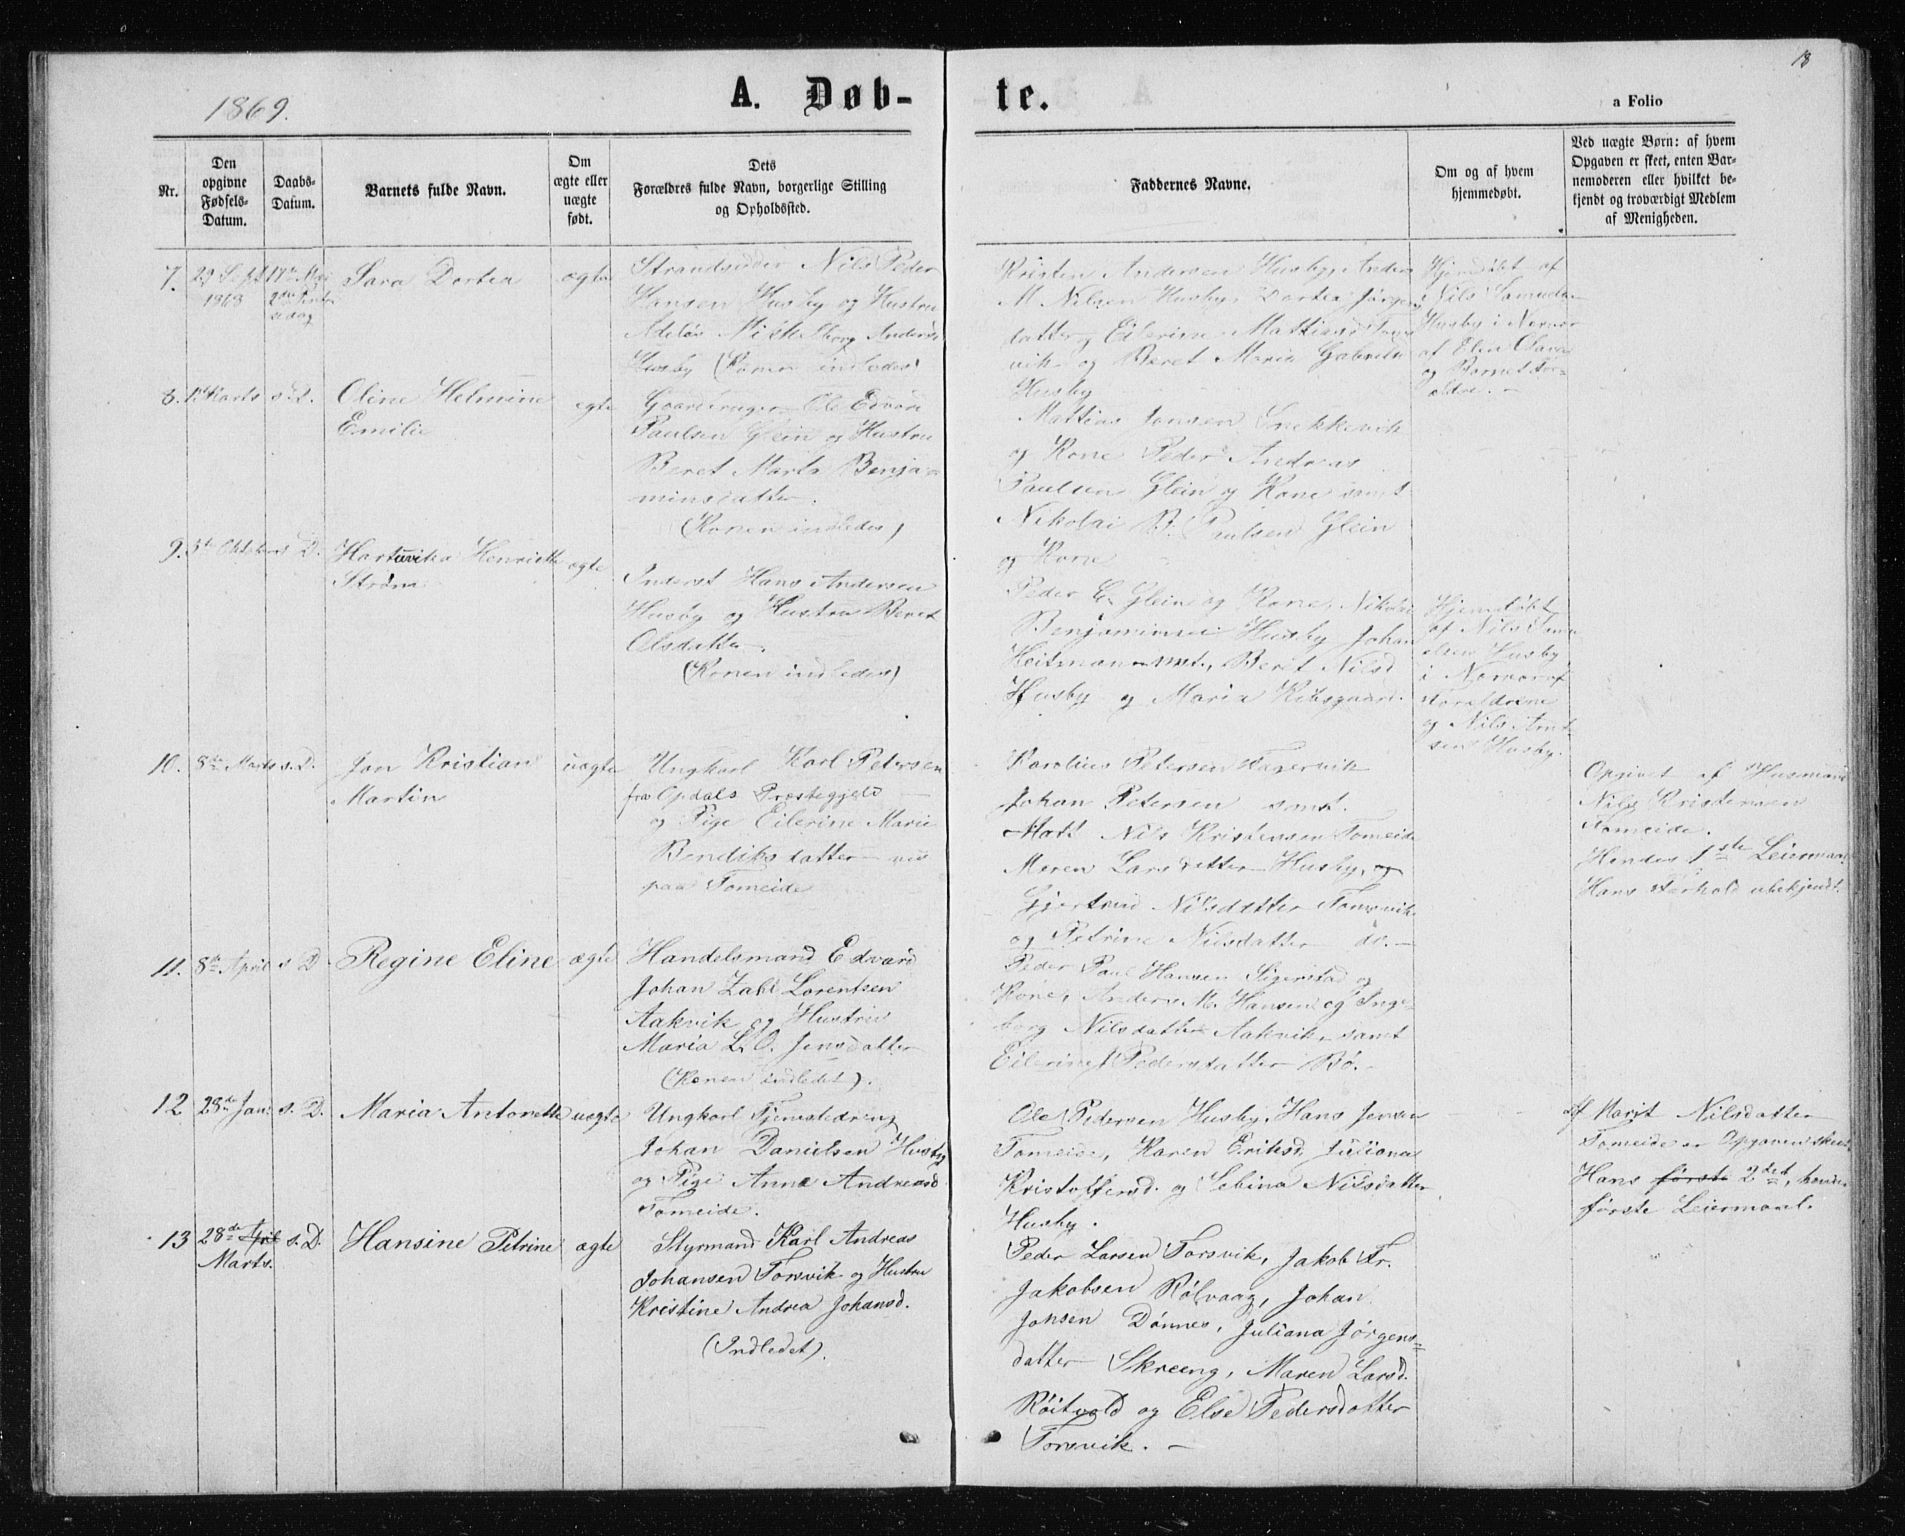 18
1869.
A. Døb-
te.
a Folio
Nr.
Den
opgivne
Fødsels-
Datum.
Daabs-
Datum.
Barnets fulde Navn.
Om
ægte eller
uægte
født.
Dets
Forældres fulde Navn, borgerlige Stilling
og Opholdssted.
Faddernes Navne.
Om og af hvem
hjemmedøbt.
Ved uægte Børn: af hvem
Opgaven er skeet, enten Bar-
nemoderen eller hvilket be-
kjendt og troværdigt Medlem
af Menigheden.
7.
29 Sept
1868
17de Mai
2den Pintse
dag
Sara Dortea
ægte
Strandsidder Nils Peder
Hansen Husby og Hustru
Anders
Husby (Konen indledes)
Kristen Andersen Husby, Anders
M Nilsen Husby, Dortea Jørgens
datter, Eilerine Mattisd
vik og Beret Maria Gabrielsd
Husby
Hjemdøbt af
Nils Samuelsen
Husby i Nærvær
af Elen Olava
og Barnets For-
ældre. -
8.
Marts
s. D.
Oline Helmine
Emilie
egte
Gaardbruger Ole Edvard
Paulsen Glein og Hustru
Beret Marta Benja-
minsdatter.
(Konen indledes)
Mattias Jonsen Snekkevik
og Kone Peder Andreas
Paulsen Glein og Kone samt
Nikolai B. Paulsen Glein
og Kone
9.
5te Oktober
s. D.
Hartuvika Henriette
Strøm
ægte
Inderst Hans Andersen
Husby og Hustru Beret
Olsdatter.
(Konen indledes)
Peder E. Glein og Kone, Nikolai
Benjaminsen Husby Johan
Heitmann samt, Berit Nilsd
Husby og Maria
Hjemdøbt
af Nils Samu
elsen Husby
i Nærvær af
Forældrene
og Nils Arnt-
sen Husby.
10.
8de Marts
s. D.
Jon Kristian
Martin
uægte
Ungkarl Karl Petersen
fra Opdals Præstegjeld
og Pige Eilerine Marie
Bendiksdatter
paa Tomeide
Karolius Petersen Fagervik
Johan Petersen samt
Nils Kristensen Tomeide
Maren Larsdatter Husby, og
Gjertrud Nilsdatter
og Petrine Nilsdatter do. -
Opgivet af Husmand
Nils Kristensen
Tomeide.
Hendes 1ste Leiermaal
Hans Forhold ubekjendt.
11.
8de April
s. D.
Regine Eline
ægte
Handelsmand Edvard
Johan Zahl Lorentsen
Aakvik og Hustru
Maria L. O. Jensdatter
(Konen indledet).
Peder Paul Hansen Sigerstad og
Kone, Anders M. Hansen og Inge-
borg Nilsdatter Aakvik samt
Eilerine Pedersdatter Bø. -
12
28de Jan.
s. D.
Maria Antonette
uægte
Ungkarl Tjenestedreng
Johan Danielsen Husby
og Pige Anna Andreasd
Tomeide.
Ole Pedersen Husby, Hans Jensen
Tomeide, Karen Eriksd. Juliana
Kristoffersd. og Sebina Nilsdatter
Husby.
Af Marit Nilsdatter
Tomeide er Opgaven skeet
Hans første 2det, hendes
første Leiermaal.
13
28de April
Marts.
s. D.
Hansine Petrine
ægte
Styrmand Karl Andreas
Johansen Forsvik og Hustru
Kristine Andrea Johansd.
(Indledet).
Peder Larsen Forsvik, Jakob Fr.
Jakobsen Rølvaag, Johan
Jonsen Dønnes, Juliana Jørgens=
datter Skreeng, Maren Larsd.
Røitvold og Else Pedersdatter
Forsvik. -